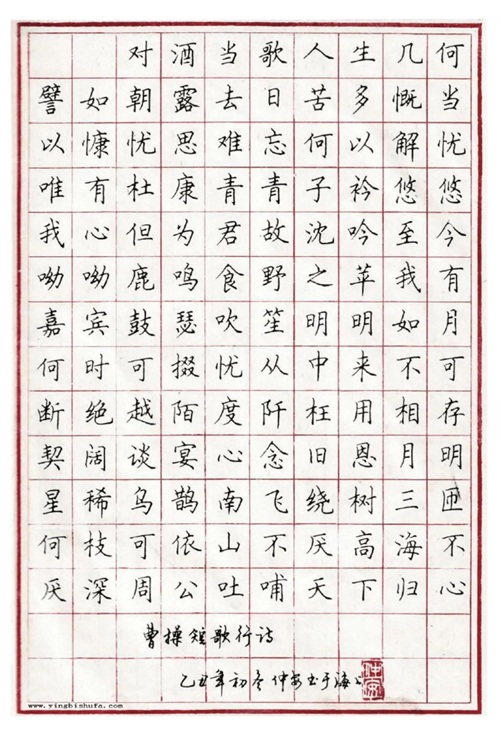 对酒当歌人生几何
譬如朝露去日苦多慨当
以慷忧思难忘何以解忧
唯有杜康青青子衿悠悠
我心但为君故沈吟至今
呦呦鹿鸣食野之苹我有
嘉宾鼓瑟吹笙明明如月
何时可掇忧从中来不可
断绝越陌度阡枉用相存
契阔谈宴心念旧恩月明
星稀乌鹊南飞绕树三匝
何枝可依山不厌高海不
厌深周公吐哺天下归心
曹操短歌行诗
乙丑年初冬仲书于海上
www.yingbishufa.com